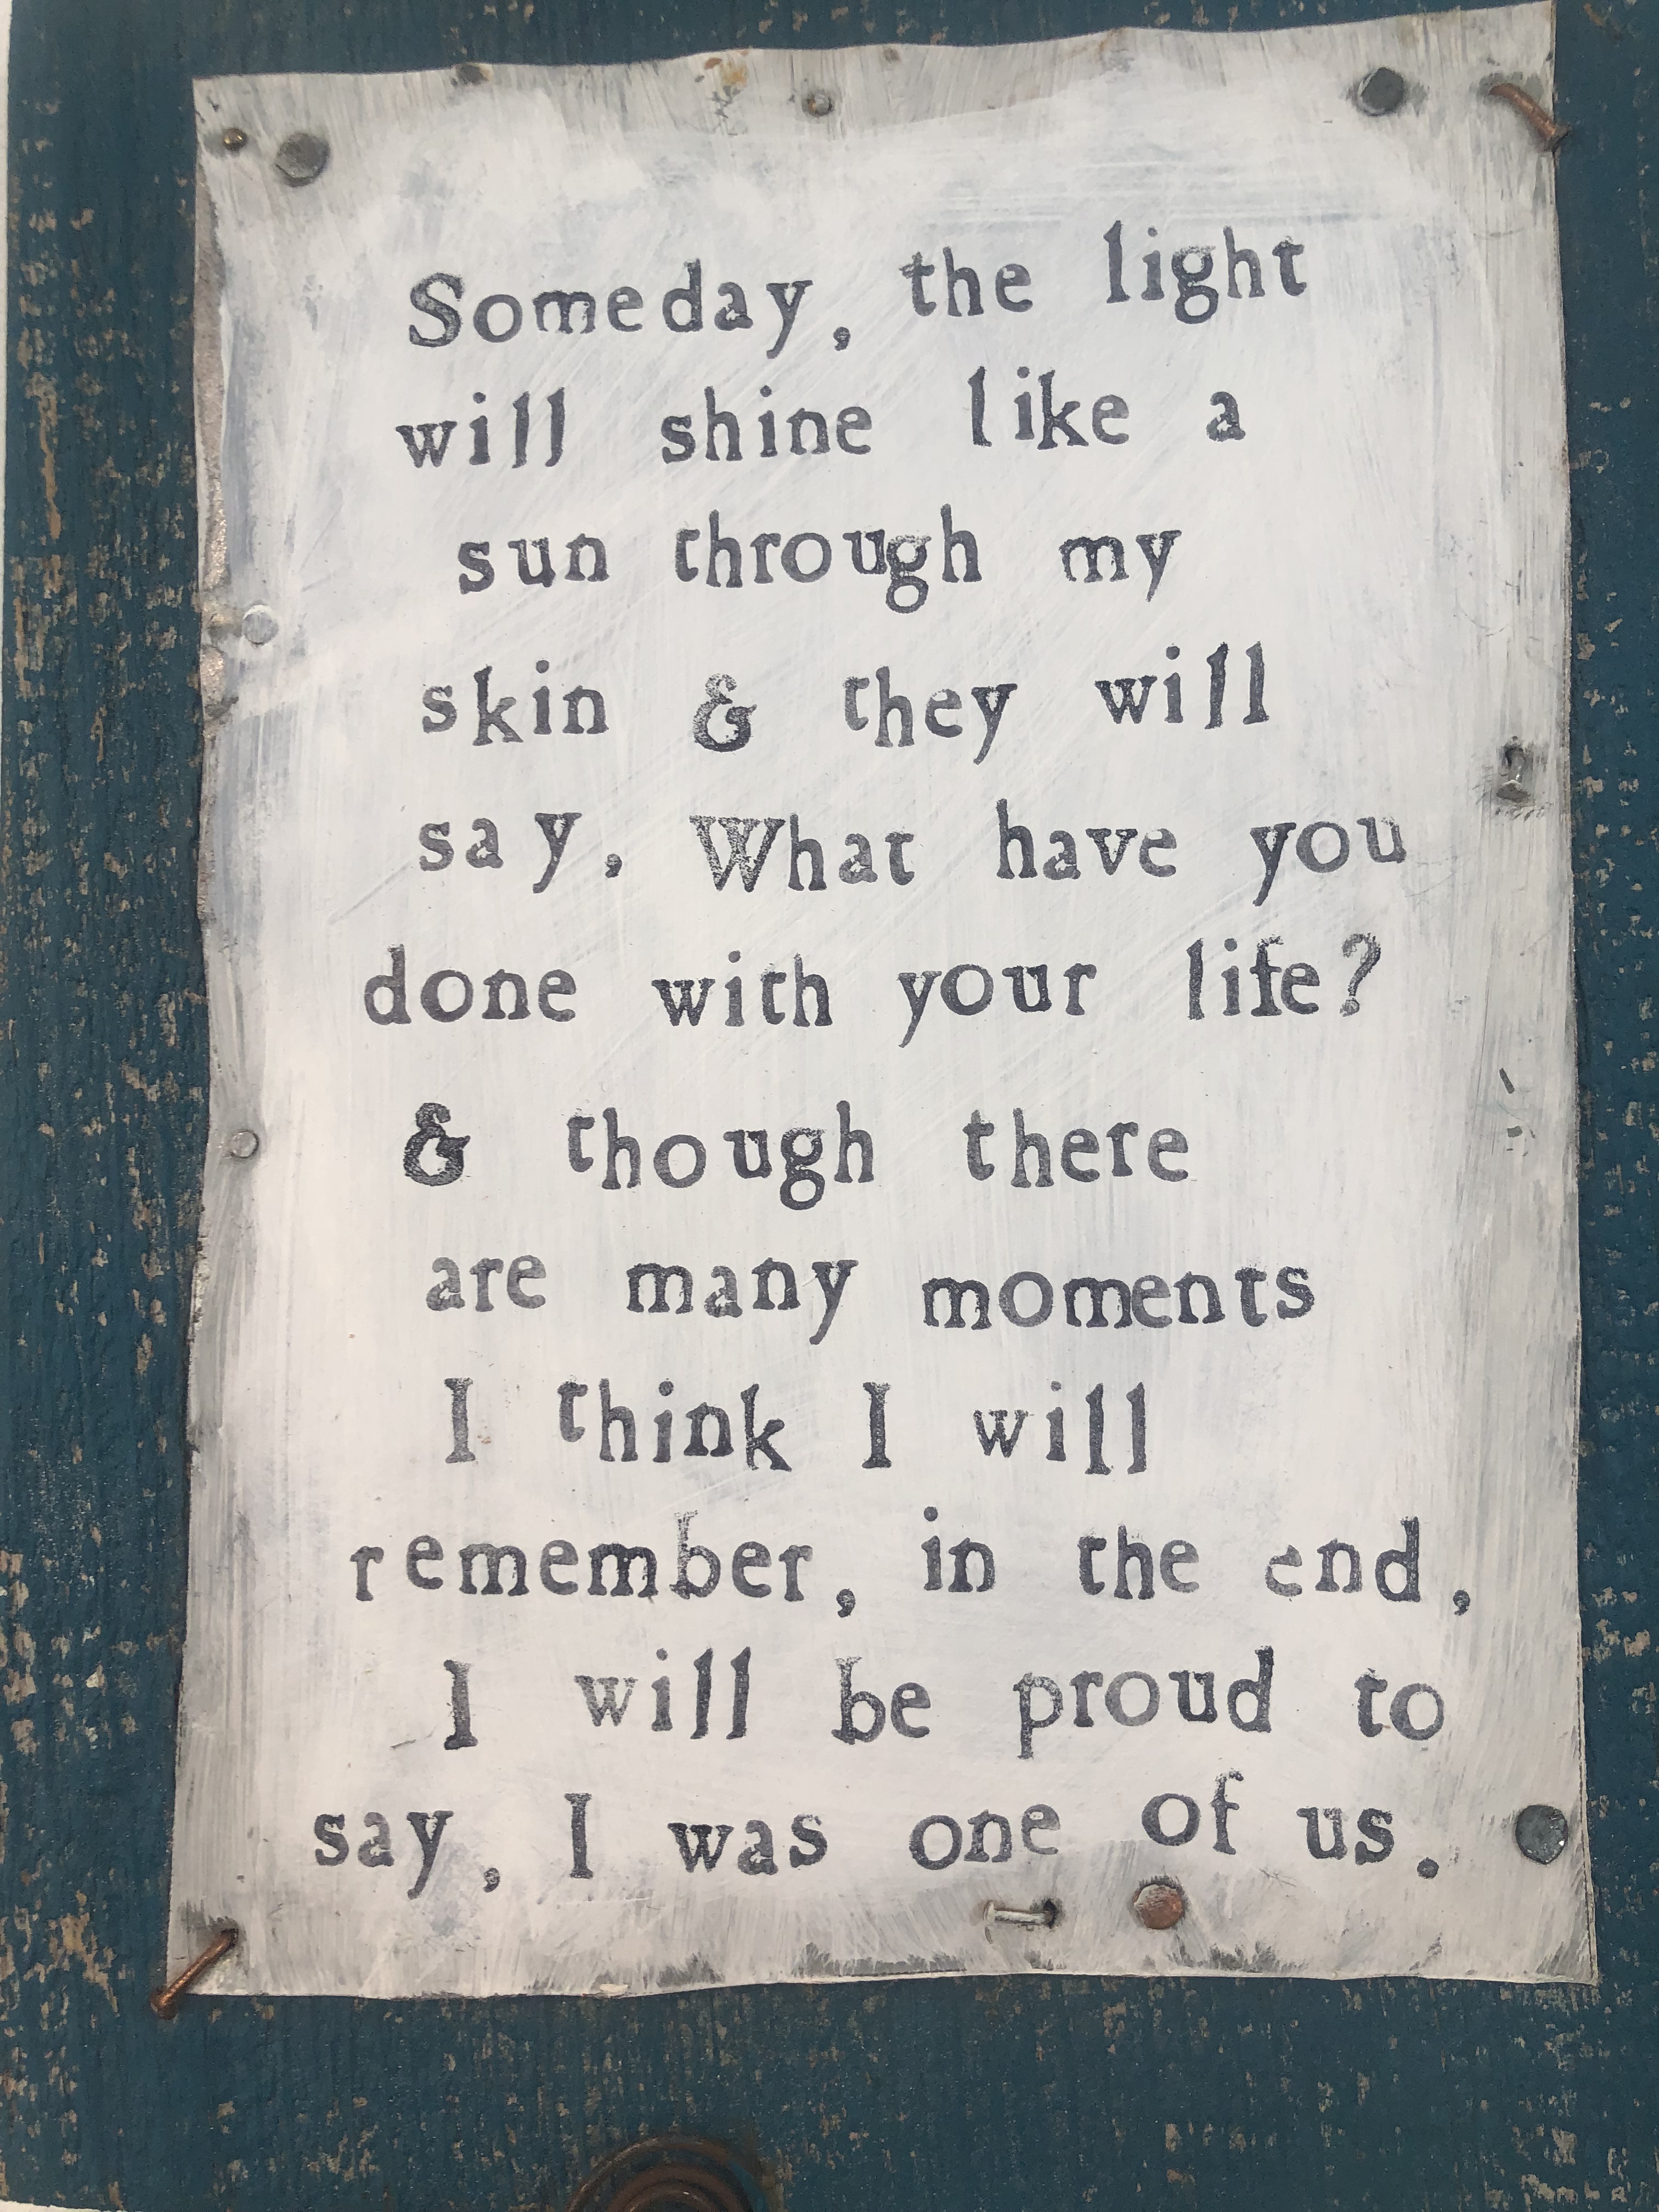 Someday, the light
will shine like a
sun through my
skin & they will
say, What have you
done with your life?
& though there
are many moments
I think I will
remember, in the end,
I will be proud to
say, I was one of us.